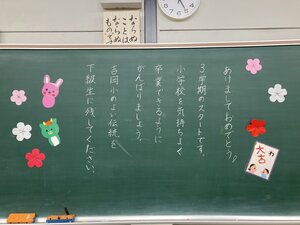 ならぬ
ことは
ならぬ
もの
あけましておめでとう!
3学期のスタートです。
小学校を気持ちよく
卒業できるように
がんばりましょう。
吉岡小のよい伝統を
下級生に残してください。
大吉